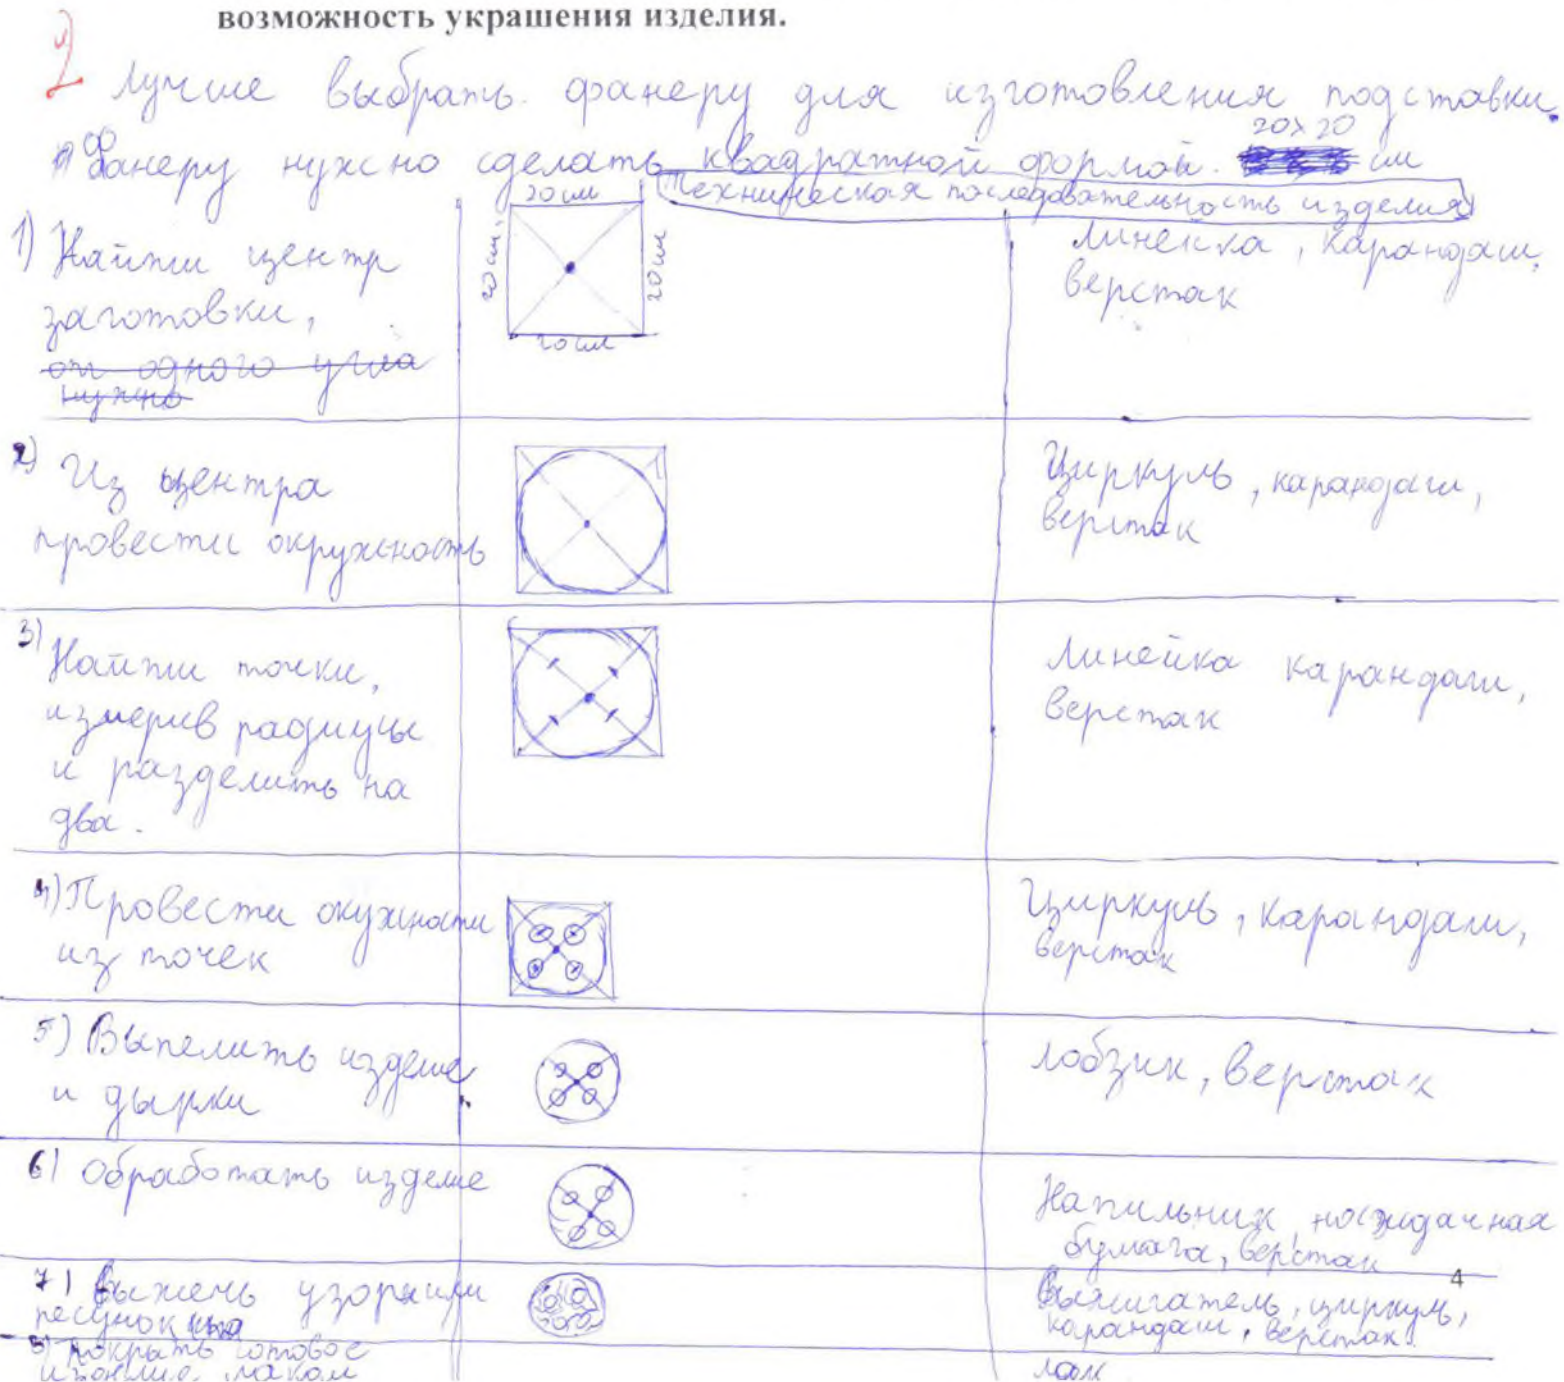 возможность украшения изделия.
2
Лучше выбрать фанеру для изготовления подставки.
Фанеру нужно сделать квадратной формой. 20х20 см
Техническая последовательность изделия
1) Найти центр
заготовки,
от одного угла
нужно
20 см
20 см
20 см
20 см
линейка, карандаш,
верстак
2) Из центра
провести окружность
Циркуль, карандаш,
верстак
3) Найти точки,
измерив радиусы
и разделить на
два.
линейка карандаш,
верстак
4) Провести окужности
из точек
Циркуль, карандаш,
верстак
5) Выпелить изделие
и дырки
лобзик, верстак
6) обработать изделие
Напильник, наждачная
бумага, верстак
4
7) Выжечь узор или
песунок
Выжигатель, циркуль,
карандаш, верстак.
8) покрыть готовое
изделие лаком
лак